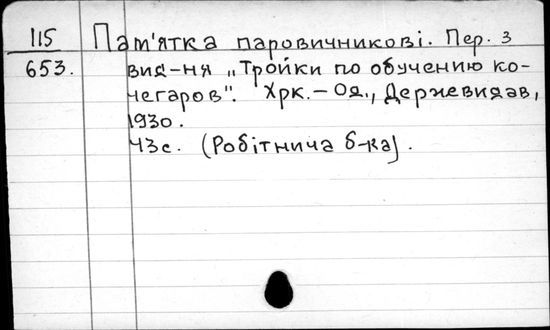 115 Пам'ятка паровичникові. Пер. з
653. вид-ня „Тройки по обучению ко-
чегаров". Хрк.-Од., Держвидав,
1930.
43с. (Робітнича б-ка).